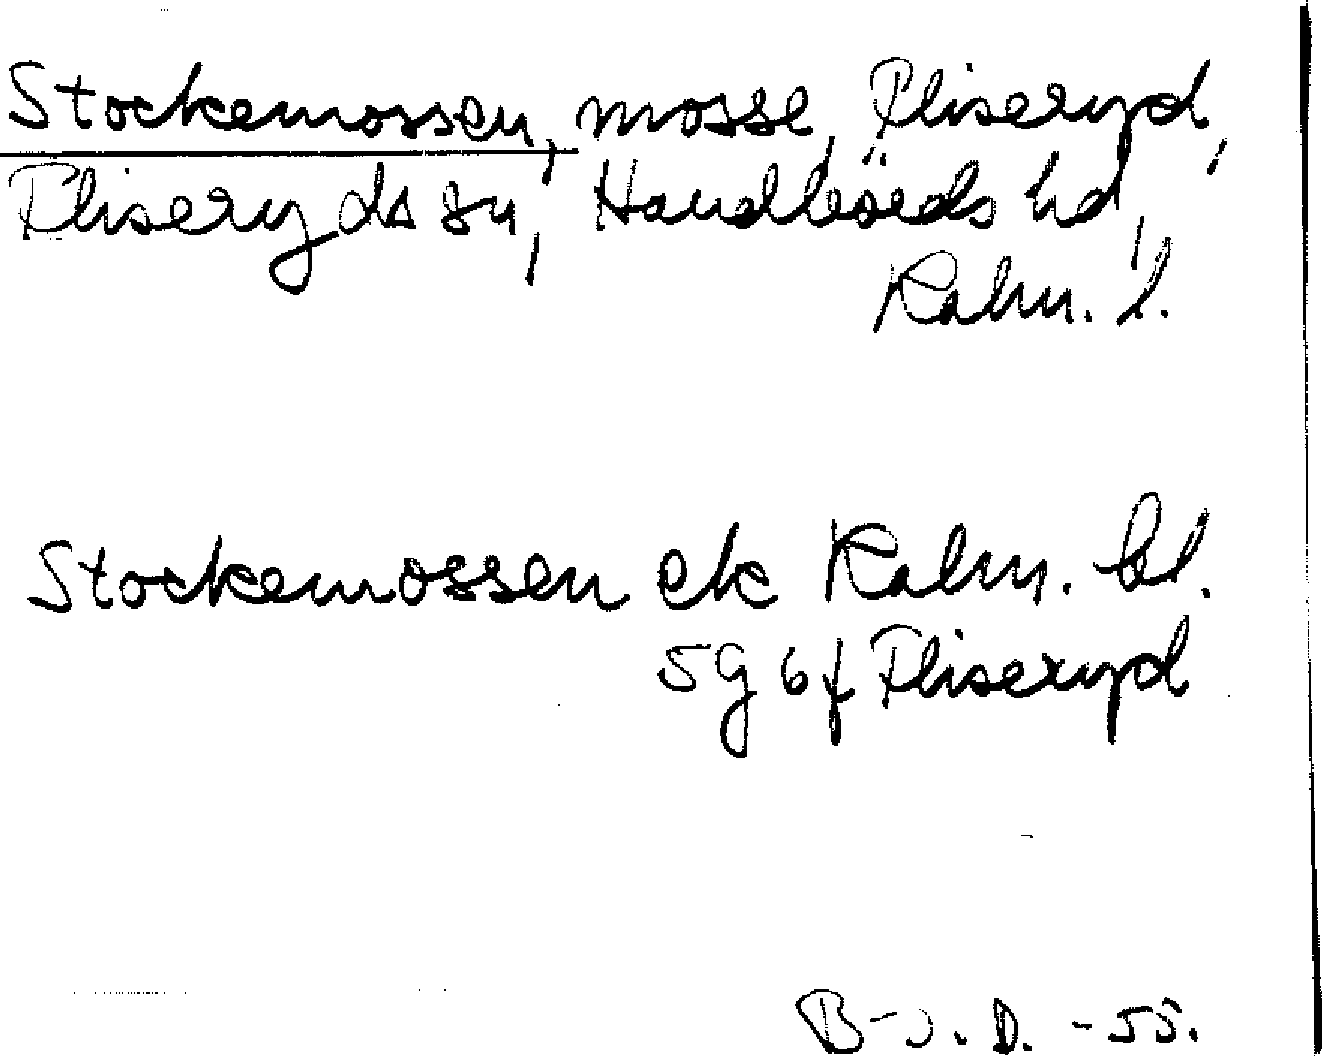 Stockemossen, mosse, Fliseryd,
Fliseryds sn, Handbörds hd,
Kalm. l.
Stockemossen ek Kalm. bl.
5g 6f Fliseryd
B-J. D. -55.